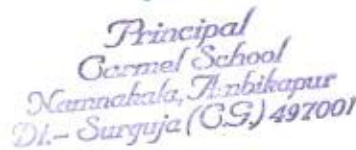 Principal
Carmel School
Namnakala, Ambikapur
Dt.- Surguja (C.G.) 497001